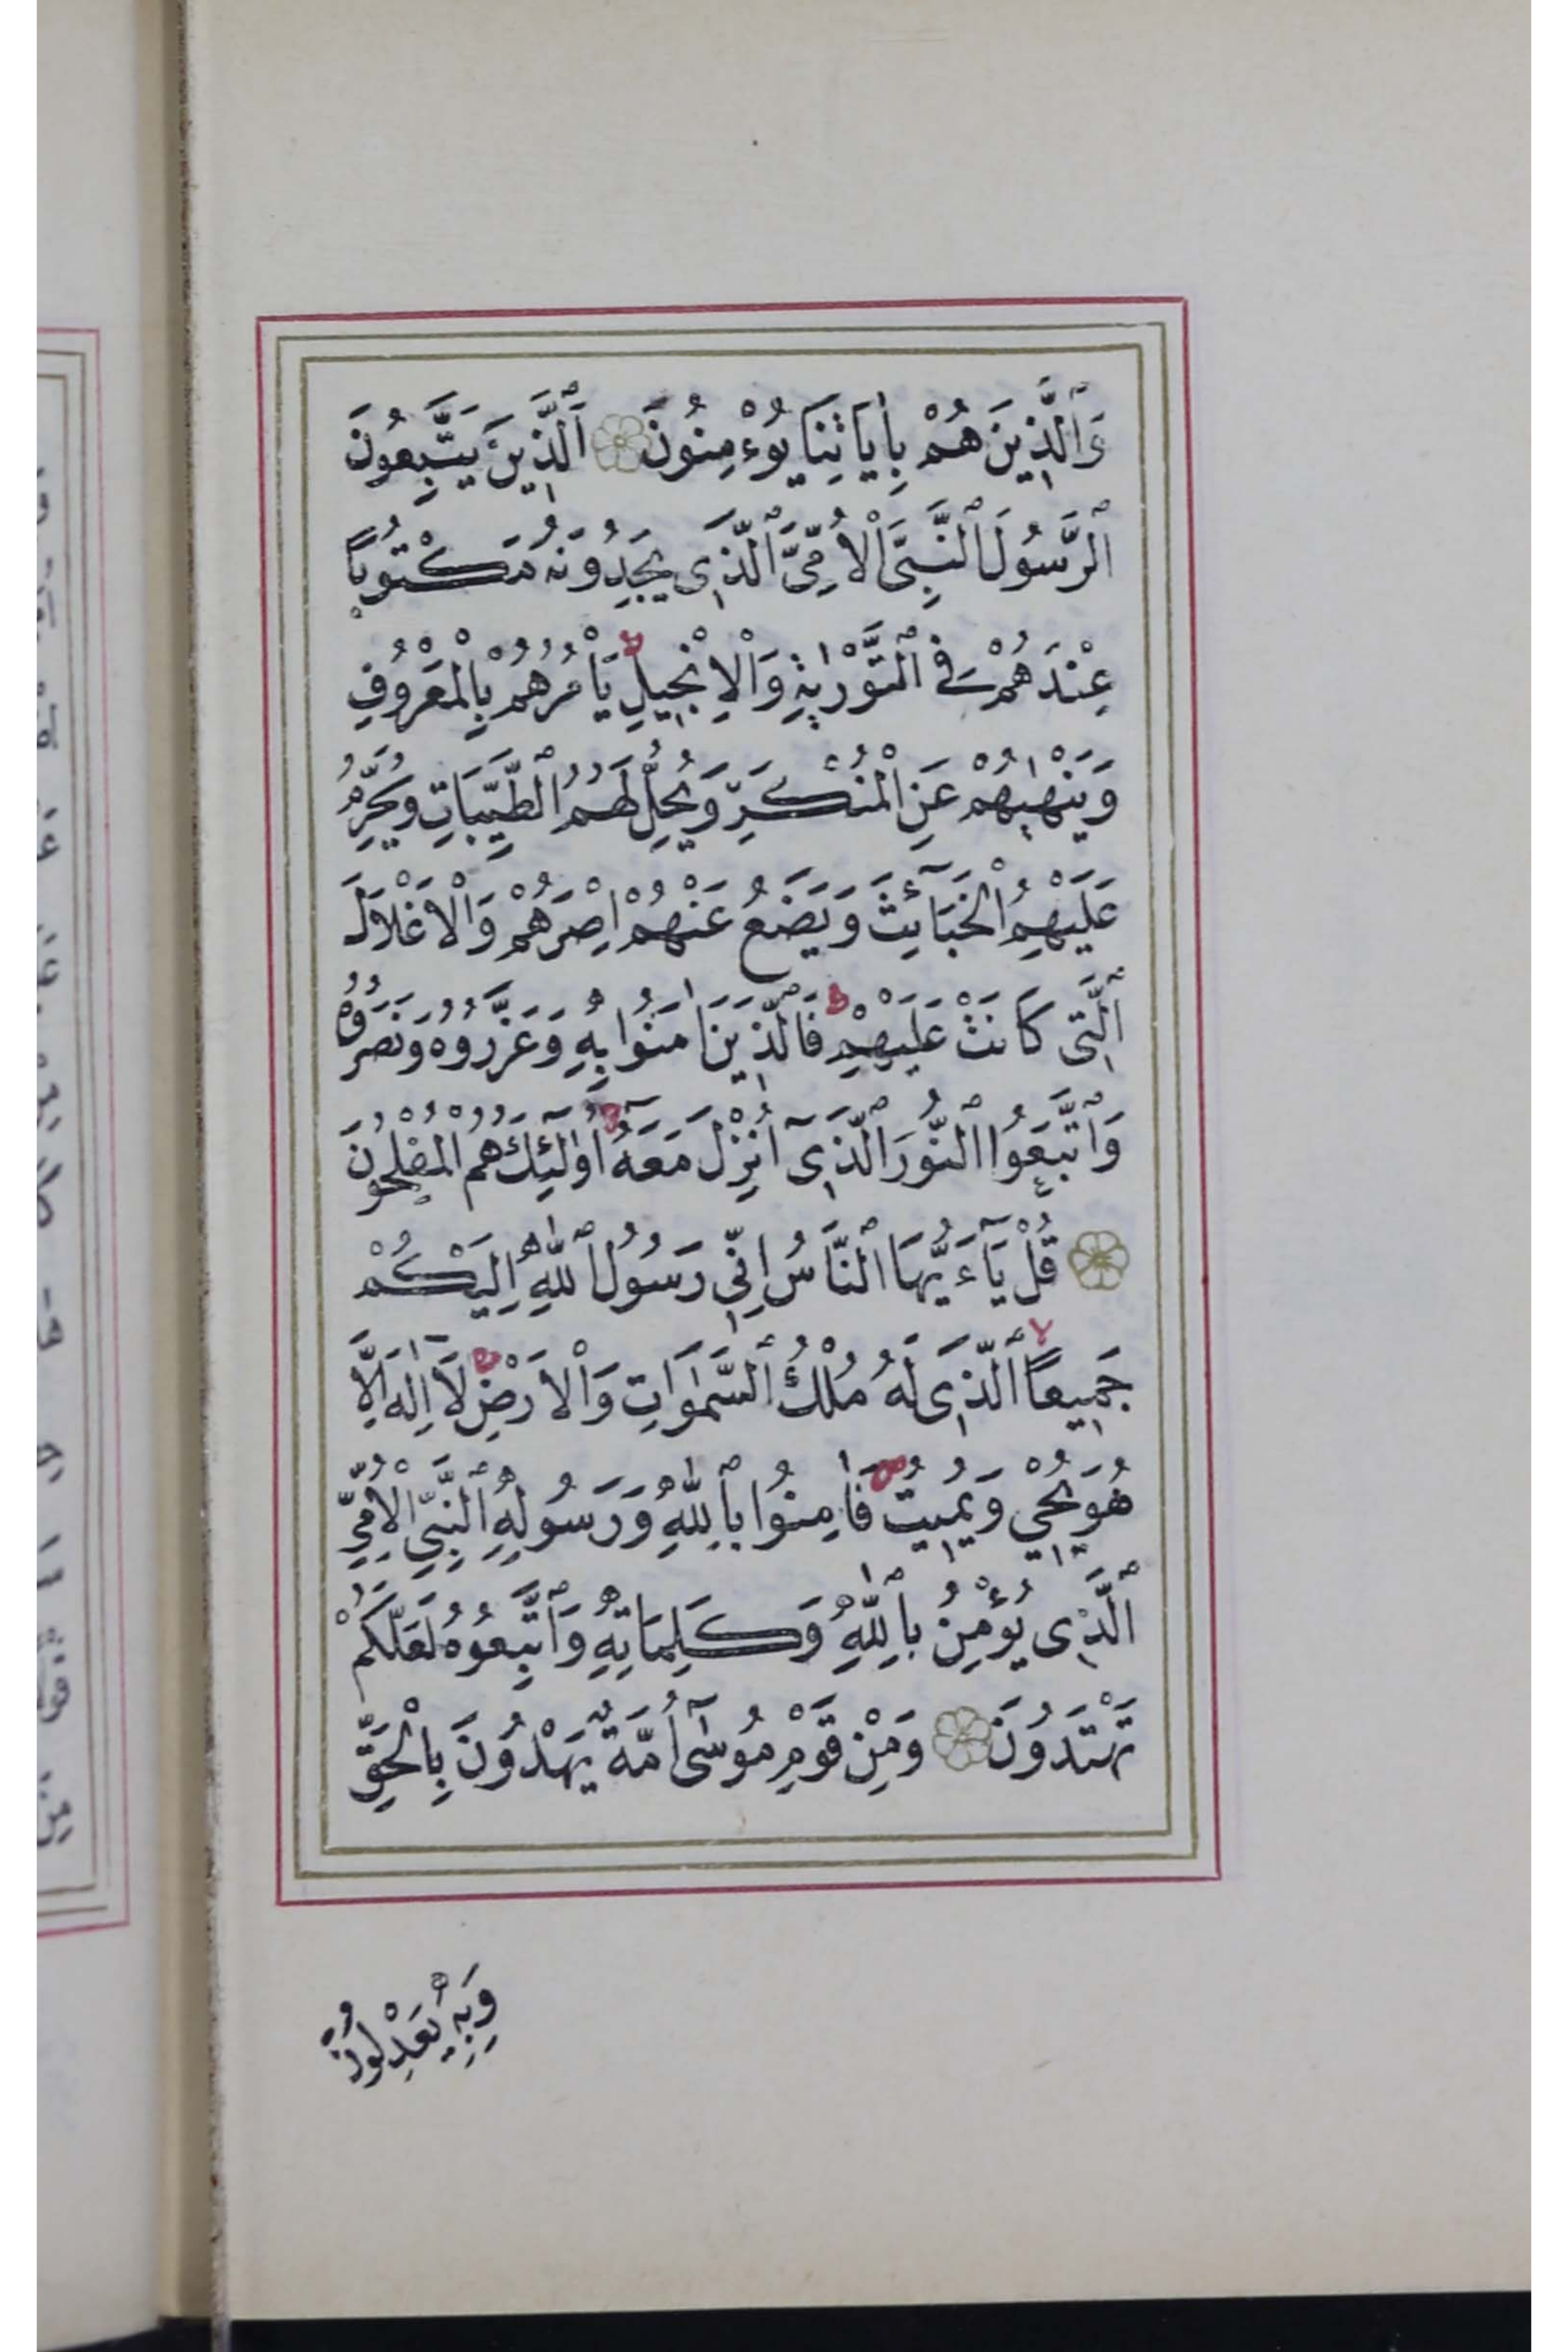 وَٱلَّذِينَ هُمْ بِاٰيَاتِنَا يُوءْمِنُونَ ٱَلَّذِينَ يَتَّبِعُونَ
ٱلرَّسُولَ ٱلنَّبِىَّ ٱلْاُمِّىَّ ٱلَّذِى يَجِدُونَهُ مَكْتُوبًا
عِنْدَهُمْ فِى ٱلتَّوْرٰيةِ وَٱلْاِنْجِيلِ يَأْمُرُهُمْ بِالْمَعْرُوفِ
وَيَنْهٰيهُمْ عَنِ الْمُنْكَرِ وَيُحِلُّ لَهُمُ ٱلطَّيِّبَاتِ وَيُحَرِّمُ
عَلَيْهِمُ الْخَبَآئِثَ وَيَضَعُ عَنْهُمْ اِصْرَهُمْ وَالْاَغْلَالَ
ٱلَّتِى كَانَتْ عَلَيْهِمْ ط فَالَّذِينَ اٰمَنُوا بِهِ وَعَزَّرُوهُ وَنَصَرُوهُ
وَٱتَّبَعُوا ٱلنُّورَ ٱلَّذِىٓ اُنْزِلَ مَعَهُ ط اُولٰٓئِكَ هُمُ الْمُفْلِحُونَ
قُلْ يَآءَيُّهَا ٱلنَّاسُ اِنِّى رَسُولُ ٱللّٰهِ اِلَيْكُمْ
جَمِيعًا لا ٱلَّذِى لَهُ مُلْكُ ٱلسَّمٰوَاتِ وَالْاَرْضِ ط لَآ اِلٰهَ اِلَّا
هُوَ يُحْيِ وَيُمِيتُ ص فَاٰمِنُوا بِٱللّٰهِ وَرَسُولِهِ ٱلنَّبِىِّ الْاُمِّىِّ
ٱلَّذِى يُؤْمِنُ بِٱللّٰهِ وَكَلِمَاتِهِ وَٱتَّبِعُوهُ لَعَلَّكُمْ
تَهْتَدُونَ وَمِنْ قَوْمِ مُوسٰٓى اُمَّةٌ يَهْدُونَ بِالْحَقِّ
وَبِهِ يَعْدِلُونَ